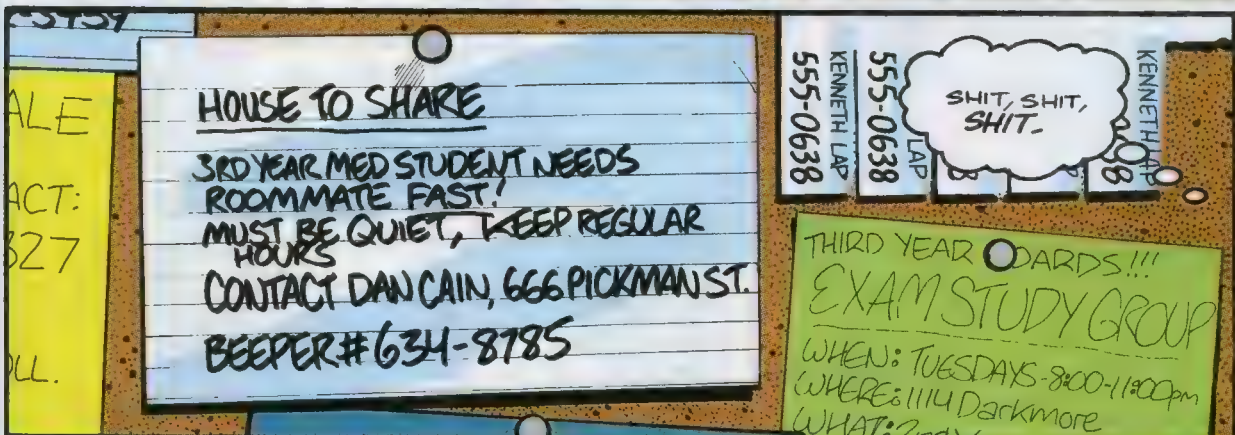 ALE
ACT:
327
OLL.
HOUSE TO SHARE
3RD YEAR MED STUDENT NEEDS
ROOMMATE FAST!
MUST BE QUIET, KEEP REGULAR
HOURS
CONTACT DAN CAIN, 666 PICKMAN ST.
BEEPER# 634-8785
KENNETH LAP
555-0638
LAP
555-0638
KENNETH LAP
SHIT, SHIT,
SHIT.
THIRD YEAR BOARDS!!!
EXAM STUDY GROUP
WHEN: TUESDAYS-8:00-11:00pm
WHERE: 1114 Darkmore
WHAT: